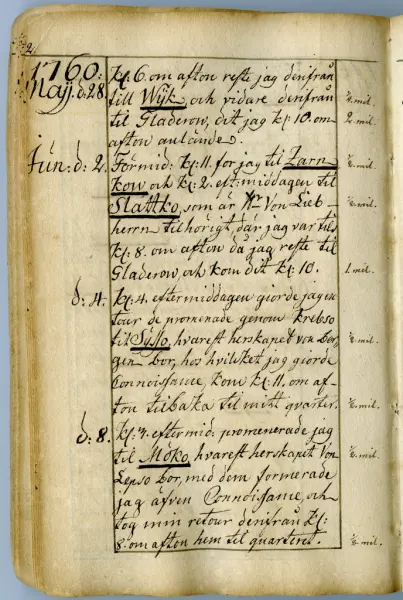 2.
1760:
Maij. d: 28.
Kl: 6. om afton reste jag derifrån
till Wyk, och vidare derifrån
til Gladerow, dit jag kl: 10. om
2. mil.
afton anlände.
Jun: d: 2.
Förmid: kl: 11. for jag til Zarn
kow och kl: 2. eft: middagen til
Slattko, som är Hr Von Lieb-
herrn tilhörigt, där jag var tils
kl: 8. om afton då jag reste til
Gladerow, och kom dit kl: 10.
1. mil.
d: 4.
kl: 4. eftermiddagen giorde jag en
tour de promenade genom Krebso
til Sysso, hvarest herskapet von Bor
gen bor, hos hvilket jag giorde
Connoissance, kom kl: 11. om af-
ton tilbaka til mitt quarter.
d: 8.
kl: 3. eftermid: promenerade jag
til Möko, hvarest herskapet Von
Lepso bor, med dem formerade
jag äfven Connoissance, och
tog min retour derifrån kl:
8. om afton hem til quarteret.